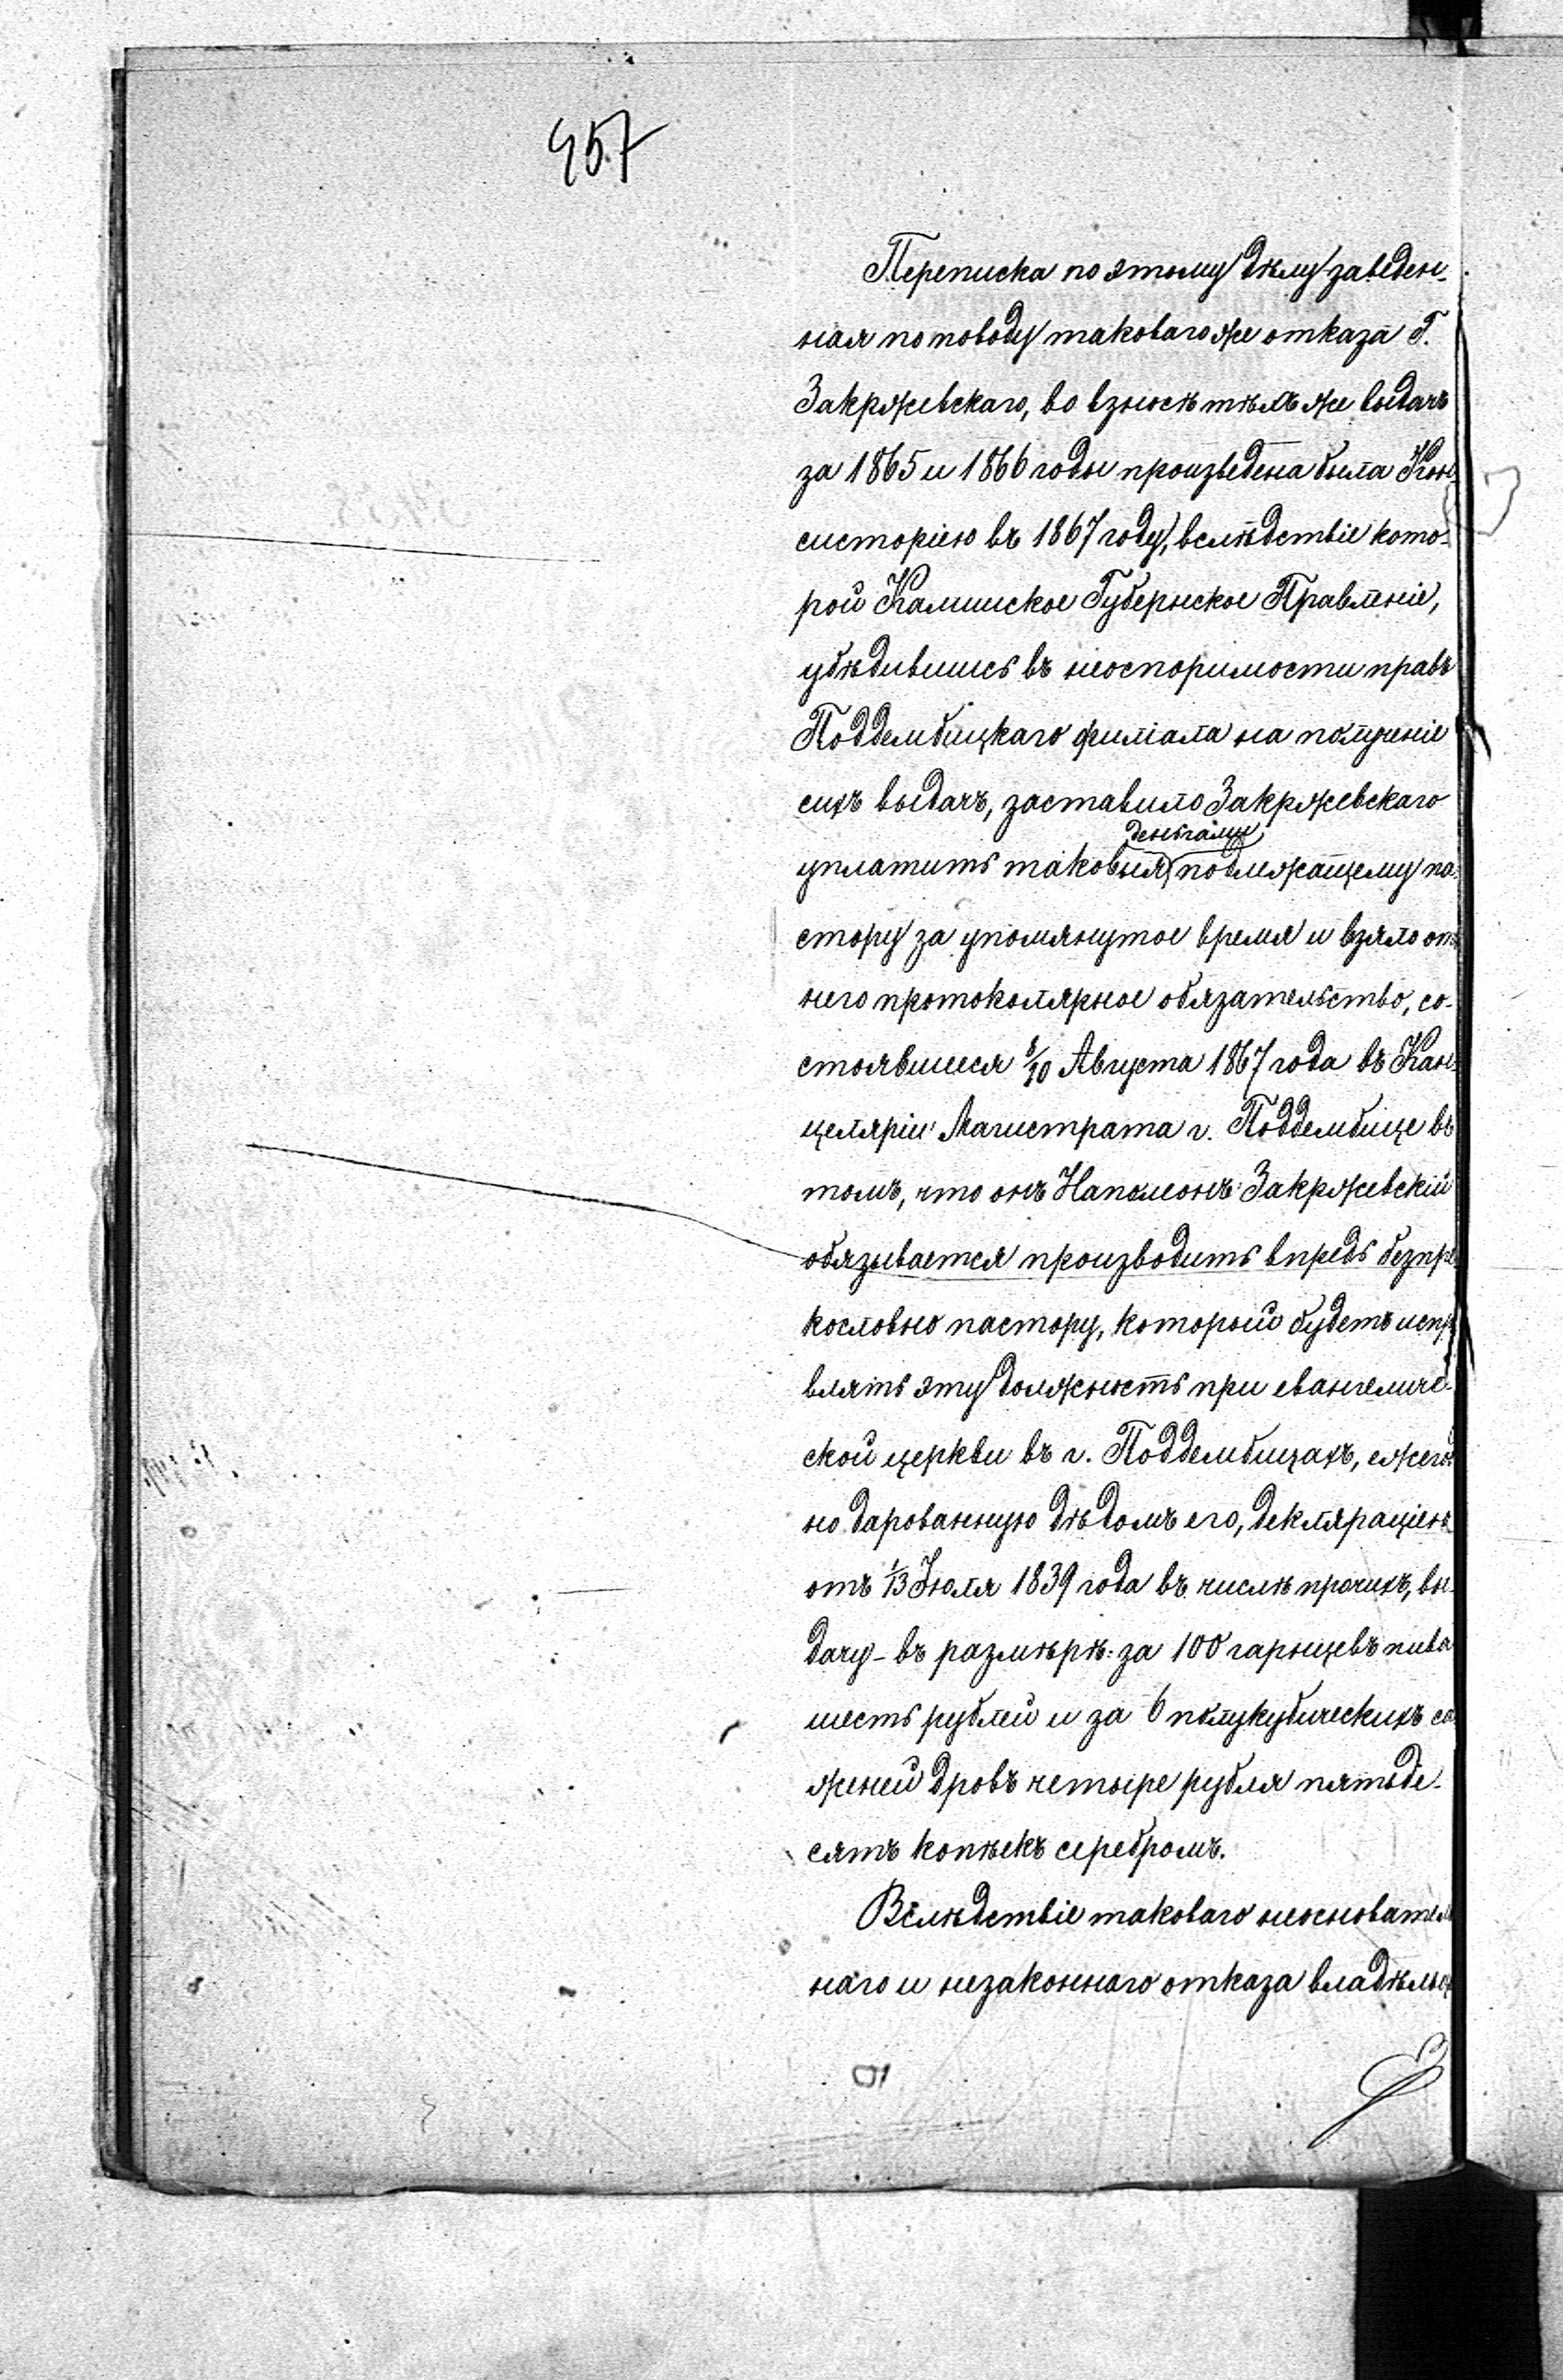 457
Переписка по этому дѣлу заведен-
ная по поводу таковаго же отказа Г.
Закржевскаго, во взносѣ тѣхъ же выдачъ
за 1865 и 1866 годы произведена была Кон-
систоріею въ 1867 году, вслѣдствіе кото-
рой Калишское Губернское Правленіе,
убѣдившись въ неоспоримости правъ
Поддембицкаго филіала на полученіе
сихъ выдачъ, заставило Закржевскаго
деньгами
уплатить таковыя подлежащему па-
стору за упомянутое время и взяло отъ
него протоколярное обязательство, со-
стоявшееся 8/20 Августа 1867 года въ Кан-
целяріи Магистрата г. Поддембице въ
томъ, что онъ Наполеонъ Закржевскій
обязывается производить впредь безпре-
кословно пастору, который будетъ испр
влять эту должность при евангеличе-
ской церкви въ г. Поддембицахъ, ежегод
но дарованную дѣдомъ его, деклараціею
отъ 1/13 Іюля 1839 года въ числѣ прочихъ, вы-
дачу - въ размѣрѣ: за 100 гарнцевъ пива
шесть рублей и за 6 полукубическихъ са
женей дровъ четыре рубля пятьде-
сятъ копѣекъ серебромъ.
Вслѣдствіе таковаго неосновател
наго и незаконнаго отказа владѣльц